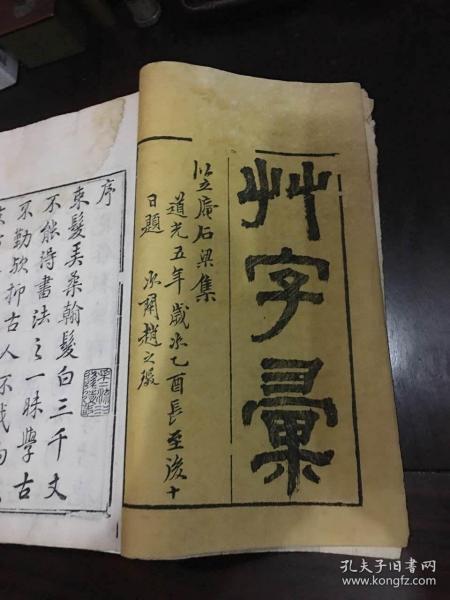 艸字彙
竺庵石梁集
道光五年歲次乙酉長至後十
日題
序
束髮弄柔翰髮白三千丈
不能得書法之一昧學古
不勤歟抑古人不我
孔夫子旧书网
www.kongfz.com